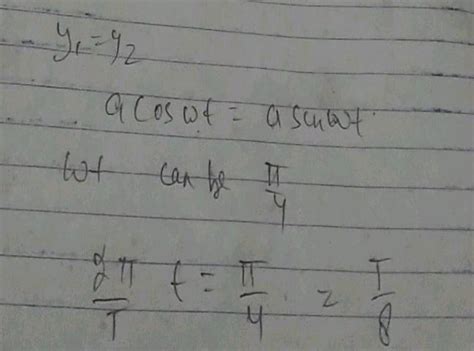 y₁ = y₂
a cos ωt = a sin ωt
ωt can be π/4
2π/T t = π/4 = T/8